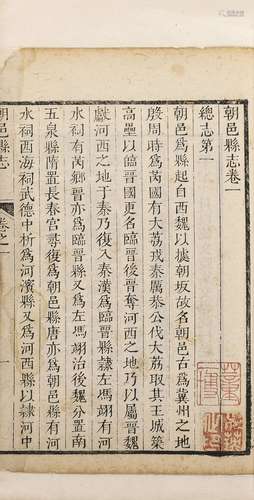 朝邑縣志卷一
總志第一
朝邑爲縣起自西魏以據朝坂故名朝邑古爲冀州之地
殷周時爲芮國有大荔戎秦厲共公伐大荔取其王城築
高壘以臨晉國更名臨晉後晉奪河西之地乃以屬晉魏
獻河西之地于秦乃復入秦漢爲臨晉縣隷左馮翊有河
水祠有芮鄉晉臨晉縣又爲左馮翊治後魏分置南
五泉縣隋置長春宮尋復爲朝邑縣唐亦爲朝邑縣有河
水祠西海祠武德中析爲河濱縣又爲河西縣以隷河中
朝邑縣志
卷之一
一